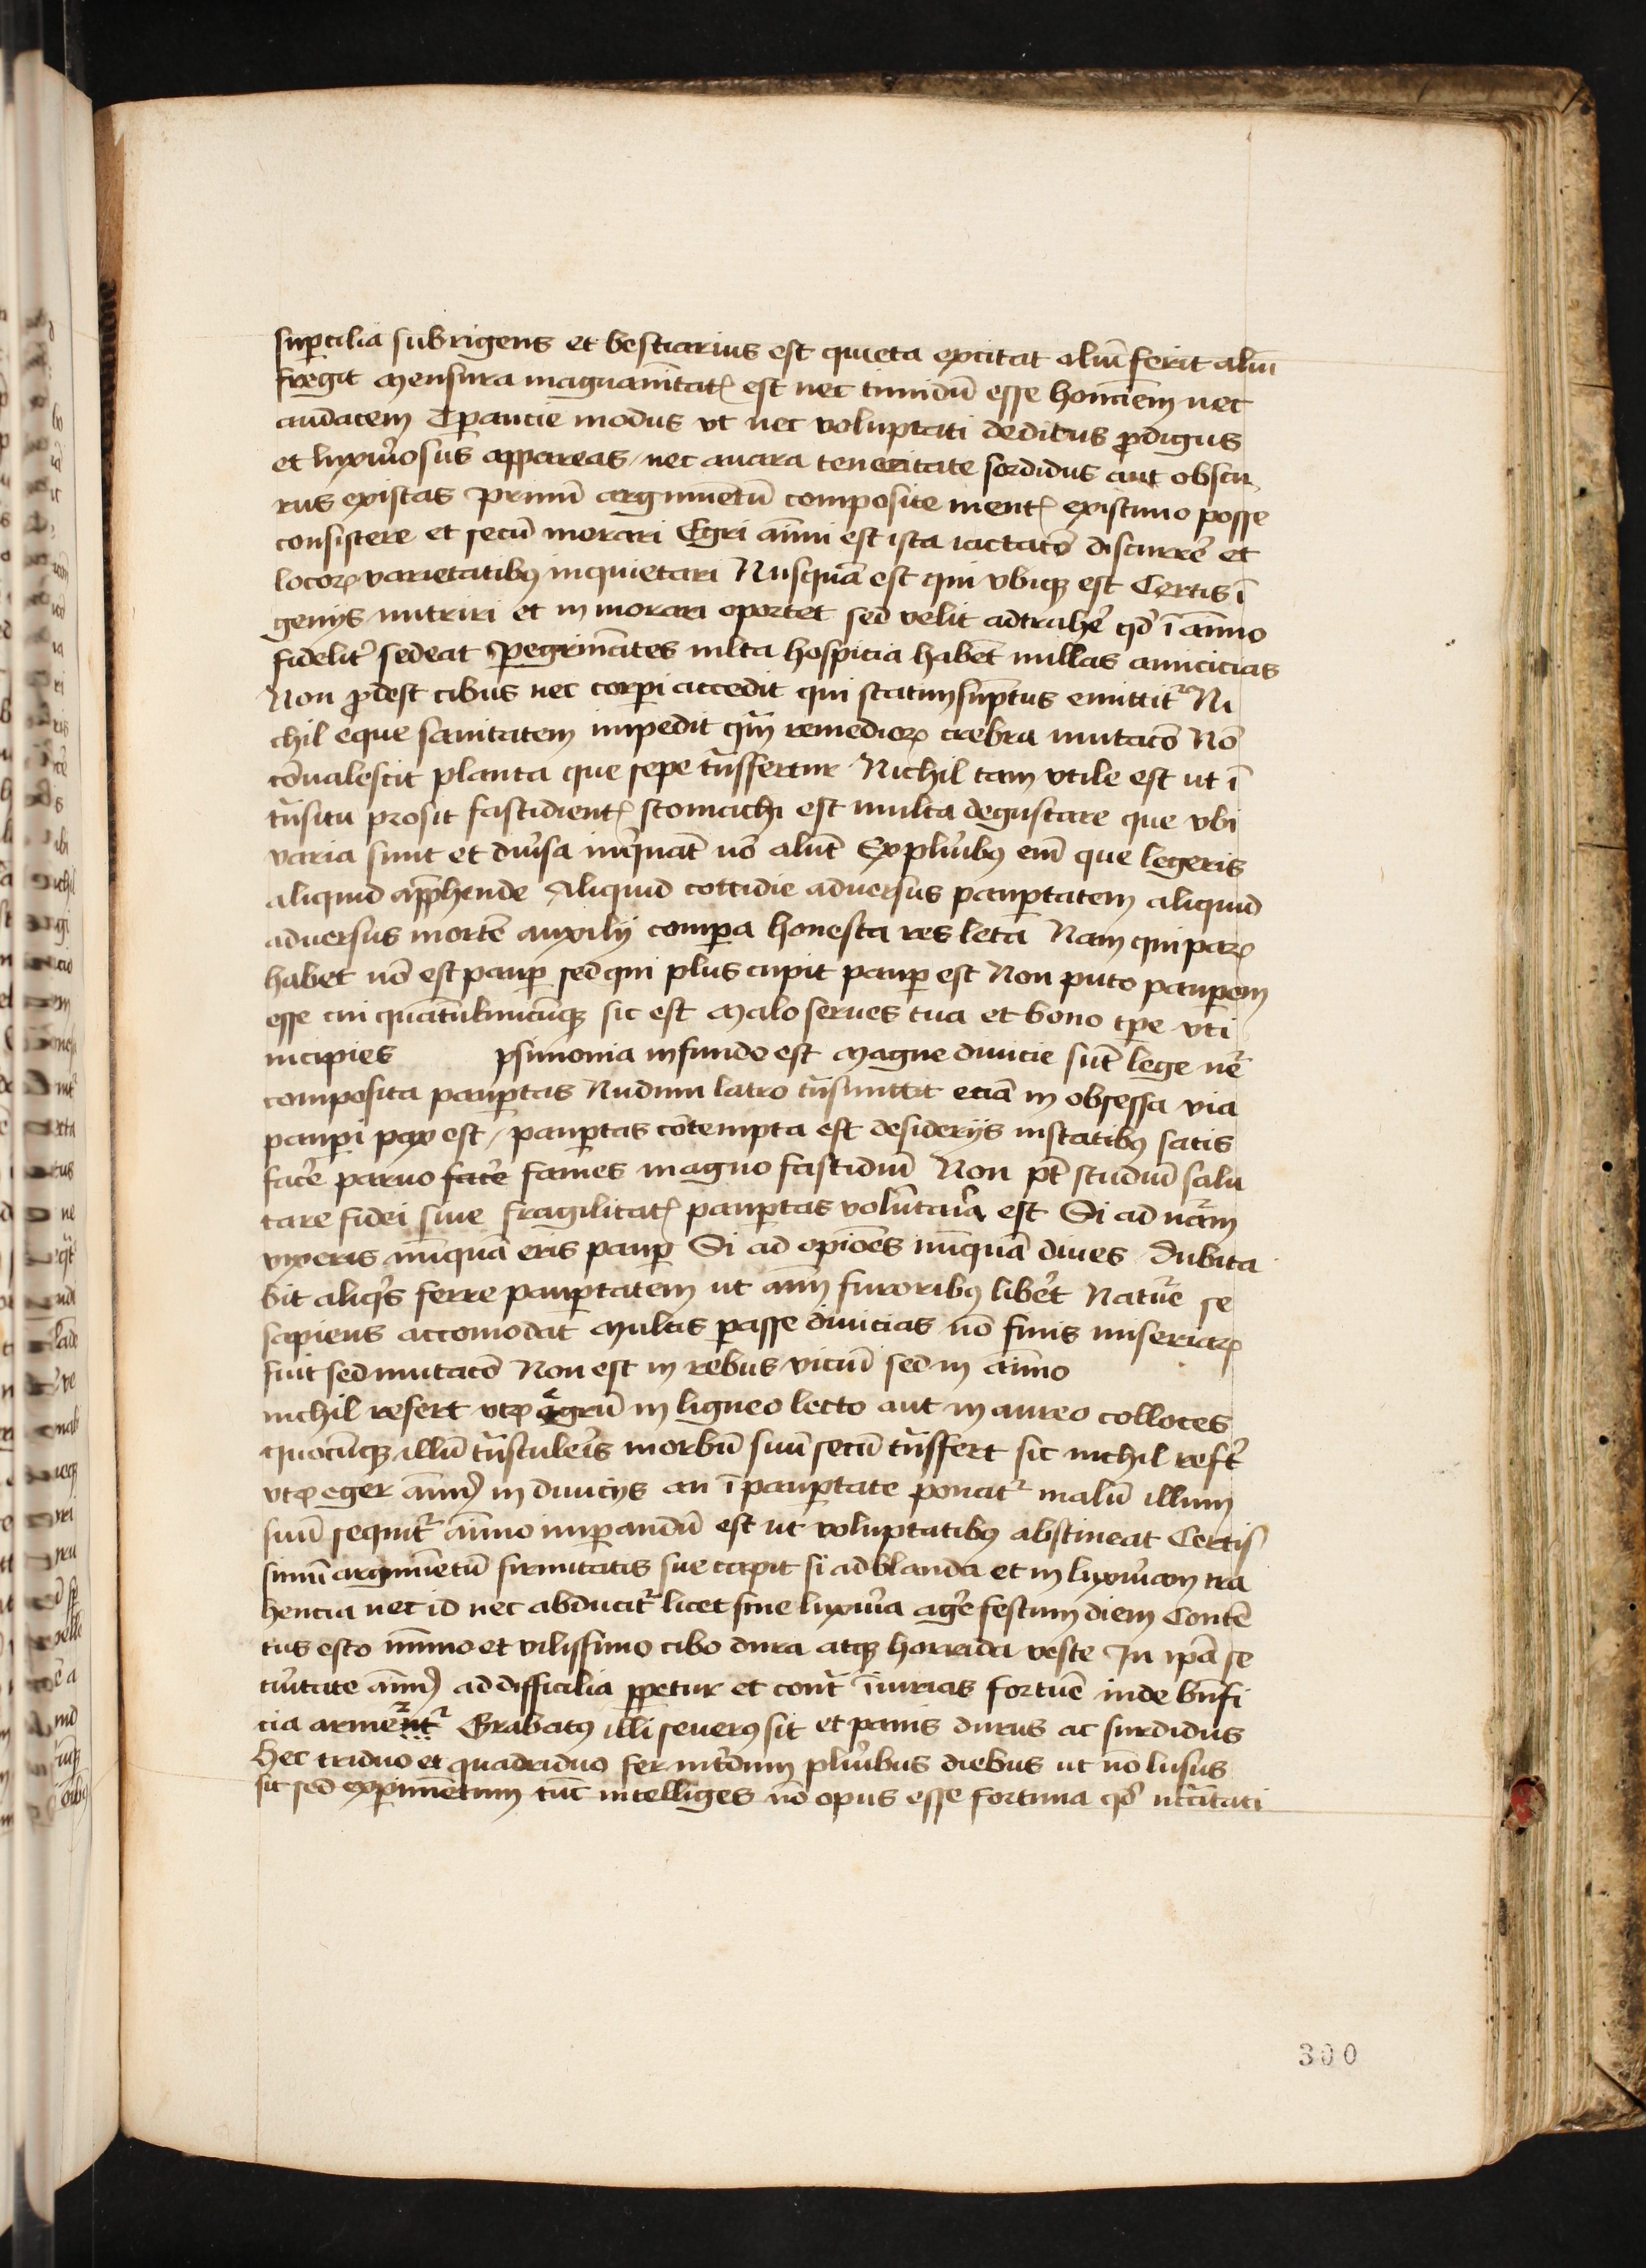 suꝑcilia subrigens et bestiarius est quieta excitat aliū ferit aliū
fregit Mensura magnanı̄tatꝭ est nec timidū esse hoı̄ēm nec
audacem Tꝑancie modus vt nec voluptati deditus ꝓdigus
et luxuosus appareas / nec auara teneritate sordidus aut obscu
rus existas Primū argumētū composite mentꝭ existimo posse
consistere et secū morari Egri aı̄mi est ista iactatō discurrē et
locoꝝ varietatibꝰ inquietari Nusquā est qui vbiqꝫ est Certis ı̄
genijs nutriri et in morari oportet sed velit adtrahē qd̄ ı̄ aı̄mo
fidelit̄ sedeat Peregrinātes mlta hospicia habēt nullas amicicias
Non ꝓdest cibus nec corꝑi accedit qui statim sūptus emittit᷑ Ni
chil eque sanitatem impedit qm̄ remedioꝝ crebra mutacō Nō
cōualescit planta que sepe tn̄sfertur Nichil tam vtile est ut ı̄
tn̄situ prosit fastidientꝭ stomachi est multa degustare que vbi
varia sunt et diu̓sa inq̓nāt nō alūt Ex plu̓ibꝰ em̄ que legeris
aliquid appͬhende Aliquid cottidie aduersus pauꝑtatem aliquid
aduersus mortē auxilij comꝑa honesta res leta Nam qui paꝝ
habet nō est pauꝑ sed qui plus cupit pauꝑ est Non puto pauꝑem
esse cui quātūlumcūqꝫ sic est Malo serues tua et bono tꝑe vti
incipies ꝑsimonia in fundo est Magne diuicie sūt lege nr̄e
composita pauꝑtas Nudum latro tn̄smittit eciā in obsessa via
pauꝑi pax est / pauꝑtas cōtempta est desiderijs instātibꝰ satis
facē paruo facē fames magno fastidiū Non pt̄ studiū salu
tare fidei sine fragilitatꝭ pauꝑtas volūtaria est Si ad nr̄am
vixeris nūquā eris pauꝑ Si ad opiōes nūquā diues Dubita
bit aliq̓s ferre pauꝑtatem ut aı̄m furoribꝰ libet̓ Nature se
sapiens accomodat Multis ꝑasse diuicias nō finis miseriaꝝ
fuit sed mutacō Non est in rebus viciū sed in aı̄mo
nichil refert vtꝝ egrū in ligneo lecto aut in aureo colloces
quocūqꝫ illū tn̄stuleris morbū suū secū tn̄sfert sic nichil reft̓
vtꝝ eger aı̄mꝰ in diuicijs an ı̄ pauꝑtate ponat᷑ malū illum
suū sequit᷑ aı̄mo imꝑandū est ut voluptatibꝰ abstineat Certis
simū argumētū firmitatis sue capit si ad blanda et in luxuriam tra
hencia nec id nec abducit᷑ licet sine luxuria agē festum diem Contē
tus esto mı̄mo et vilissimo cibo dura atqꝫ horrida veste In ip̄a se
curitate aı̄mꝰ ad difficilia ꝓꝑetur et cont̄ iniurias fortūe inde bn̄fi
cia arment᷑ Grabatꝰ illi seuerꝰ sit et panis durus ac surdidus
Hec triduo et quadriduo fer int̓dum plu̓ibus diebus ut nō lusus
sit sed exꝑimētum tūc intelliges nō opus esse fortuna qd̄ nccı̄tati
300